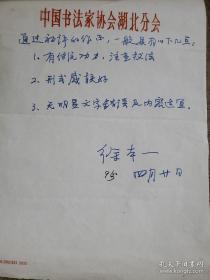 中国书法家协会湖北分会
通过初评的作品，一般具有以下几点：
1. 有传统功力，注重赵法
2. 形式感较好
3. 无明显文字书写及内容这宜
徐本一
四月廿日